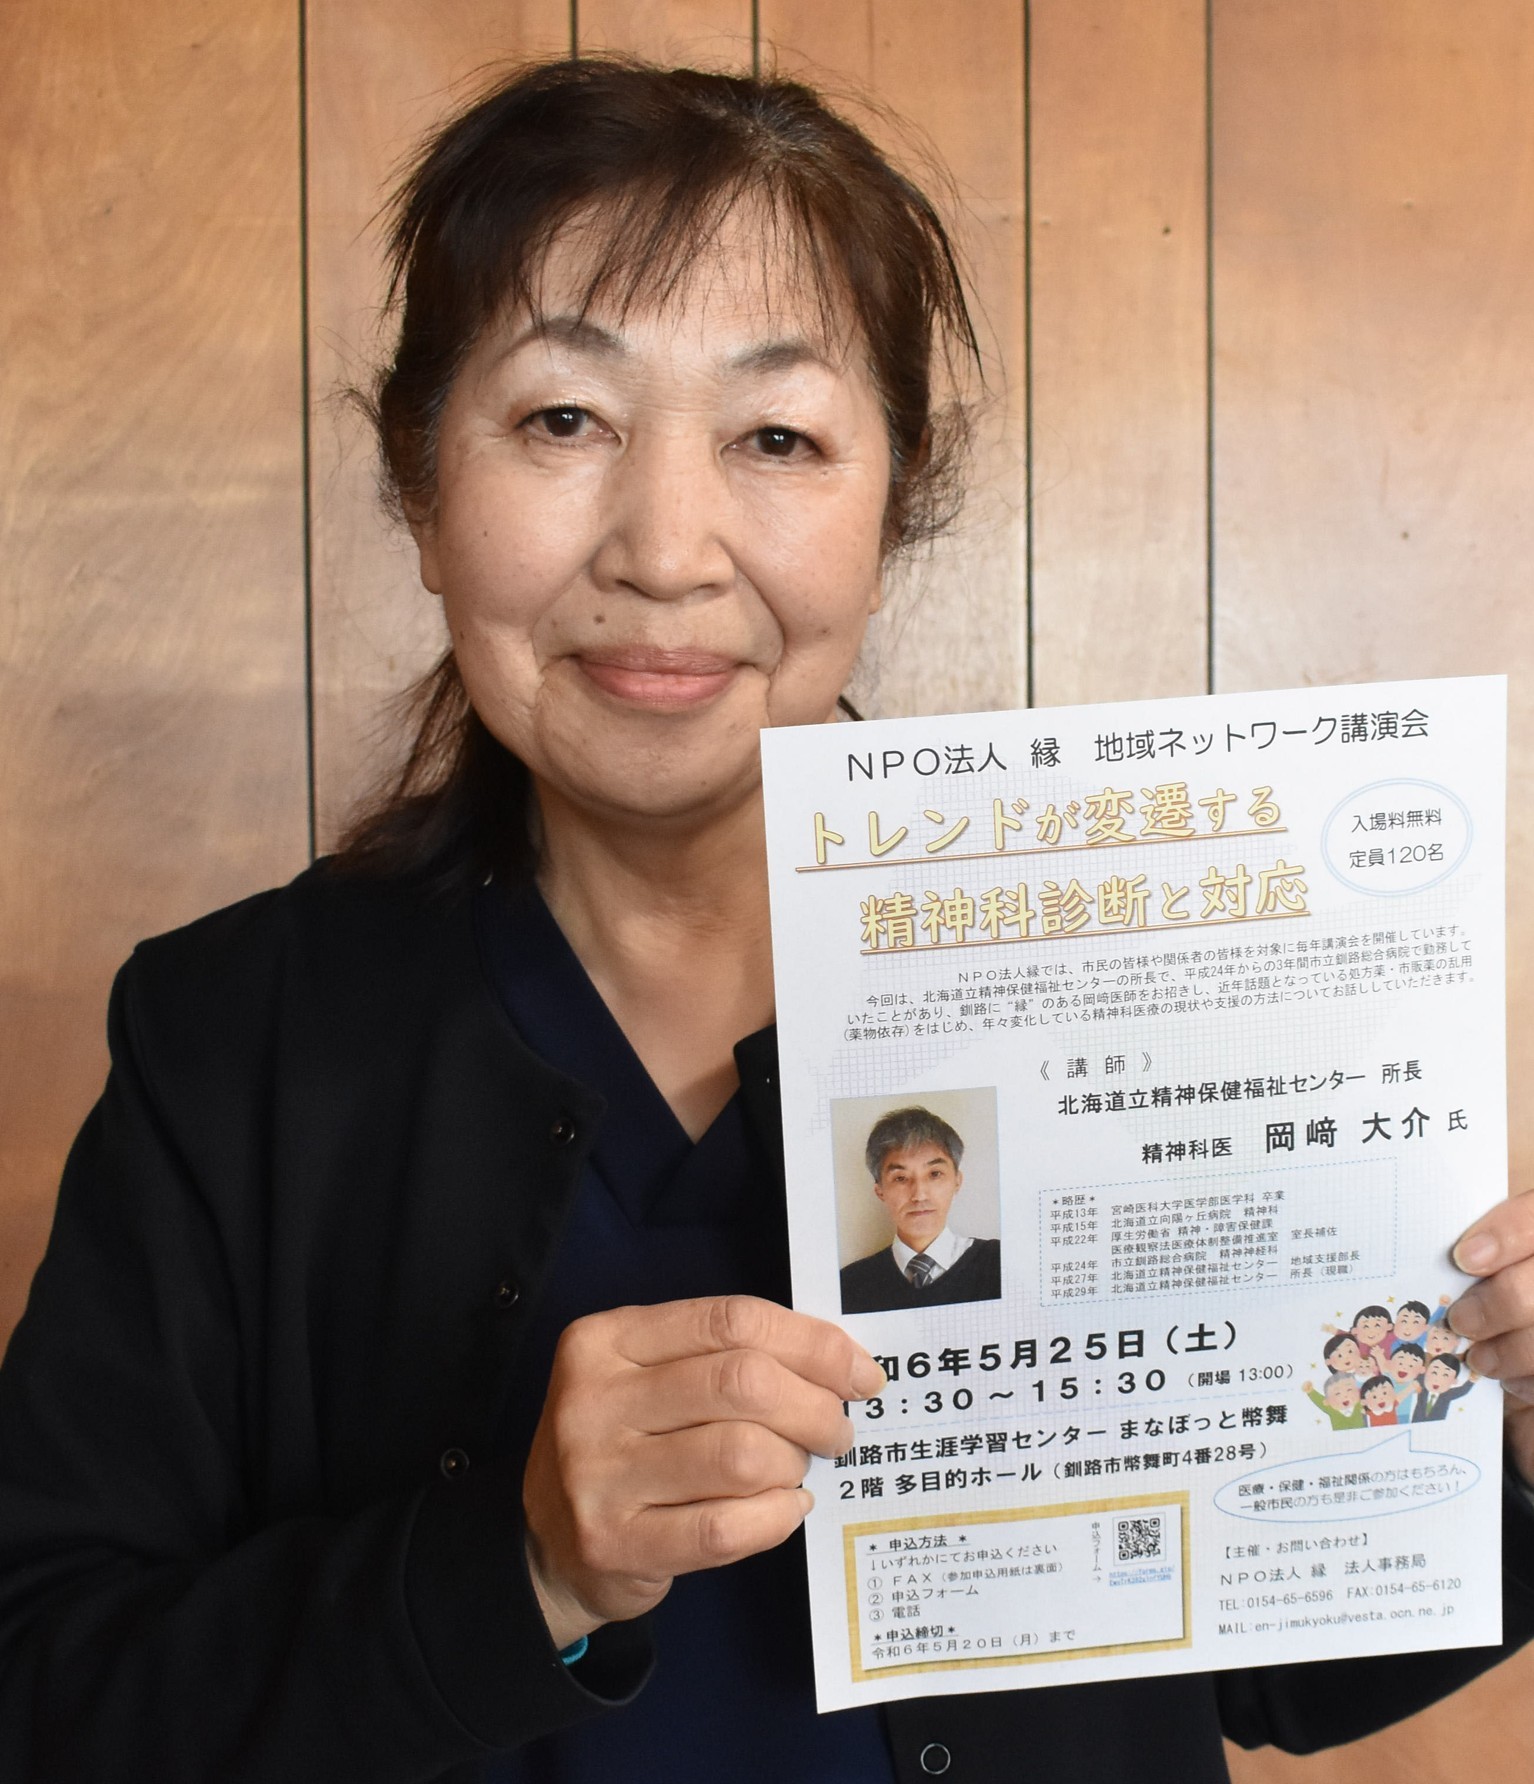 NPO法人 縁 地域ネットワーク講演会
トレンドが変遷する
精神科診断と対応
入場料無料
定員120名
NPO法人縁では、市民の皆様や関係者の皆様を対象に毎年講演会を開催しています。
今回は、北海道立精神保健福祉センターの所長で、平成24年からの3年間市立釧路総合病院で勤務して
いたことがあり、釧路に“縁”のある岡﨑医師をお招きし、近年話題となっている処方薬・市販薬の乱用
(薬物依存)をはじめ、年々変化している精神科医療の現状や支援の方法についてお話ししていただきます。
《 講 師 》
北海道立精神保健福祉センター 所長
精神科医 岡﨑 大介 氏
＊略歴＊
平成13年 宮崎医科大学医学部医学科 卒業
平成15年 北海道立向陽ヶ丘病院 精神科
平成22年 厚生労働省 精神・障害保健課
医療観察法医療体制整備推進室 室長補佐
平成24年 市立釧路総合病院 精神神経科
平成27年 北海道立精神保健福祉センター 地域支援部長
平成29年 北海道立精神保健福祉センター 所長（現職）
和6年5月25日（土）
13：30～15：30（開場 13:00）
釧路市生涯学習センター まなぼっと幣舞
2階 多目的ホール（釧路市幣舞町4番28号）
医療・保健・福祉関係の方はもちろん、
一般市民の方も是非ご参加ください！
＊ 申込方法 ＊
↓いずれかにてお申込ください
① FAX（参加申込用紙は裏面）
② 申込フォーム
③ 電話
＊申込締切＊
令和6年5月20日（月）まで
申込フォーム→
【主催・お問い合わせ】
NPO法人 縁 法人事務局
TEL:0154-65-6596 FAX:0154-65-6120
MAIL:en-jimukyoku@vesta.ocn.ne.jp